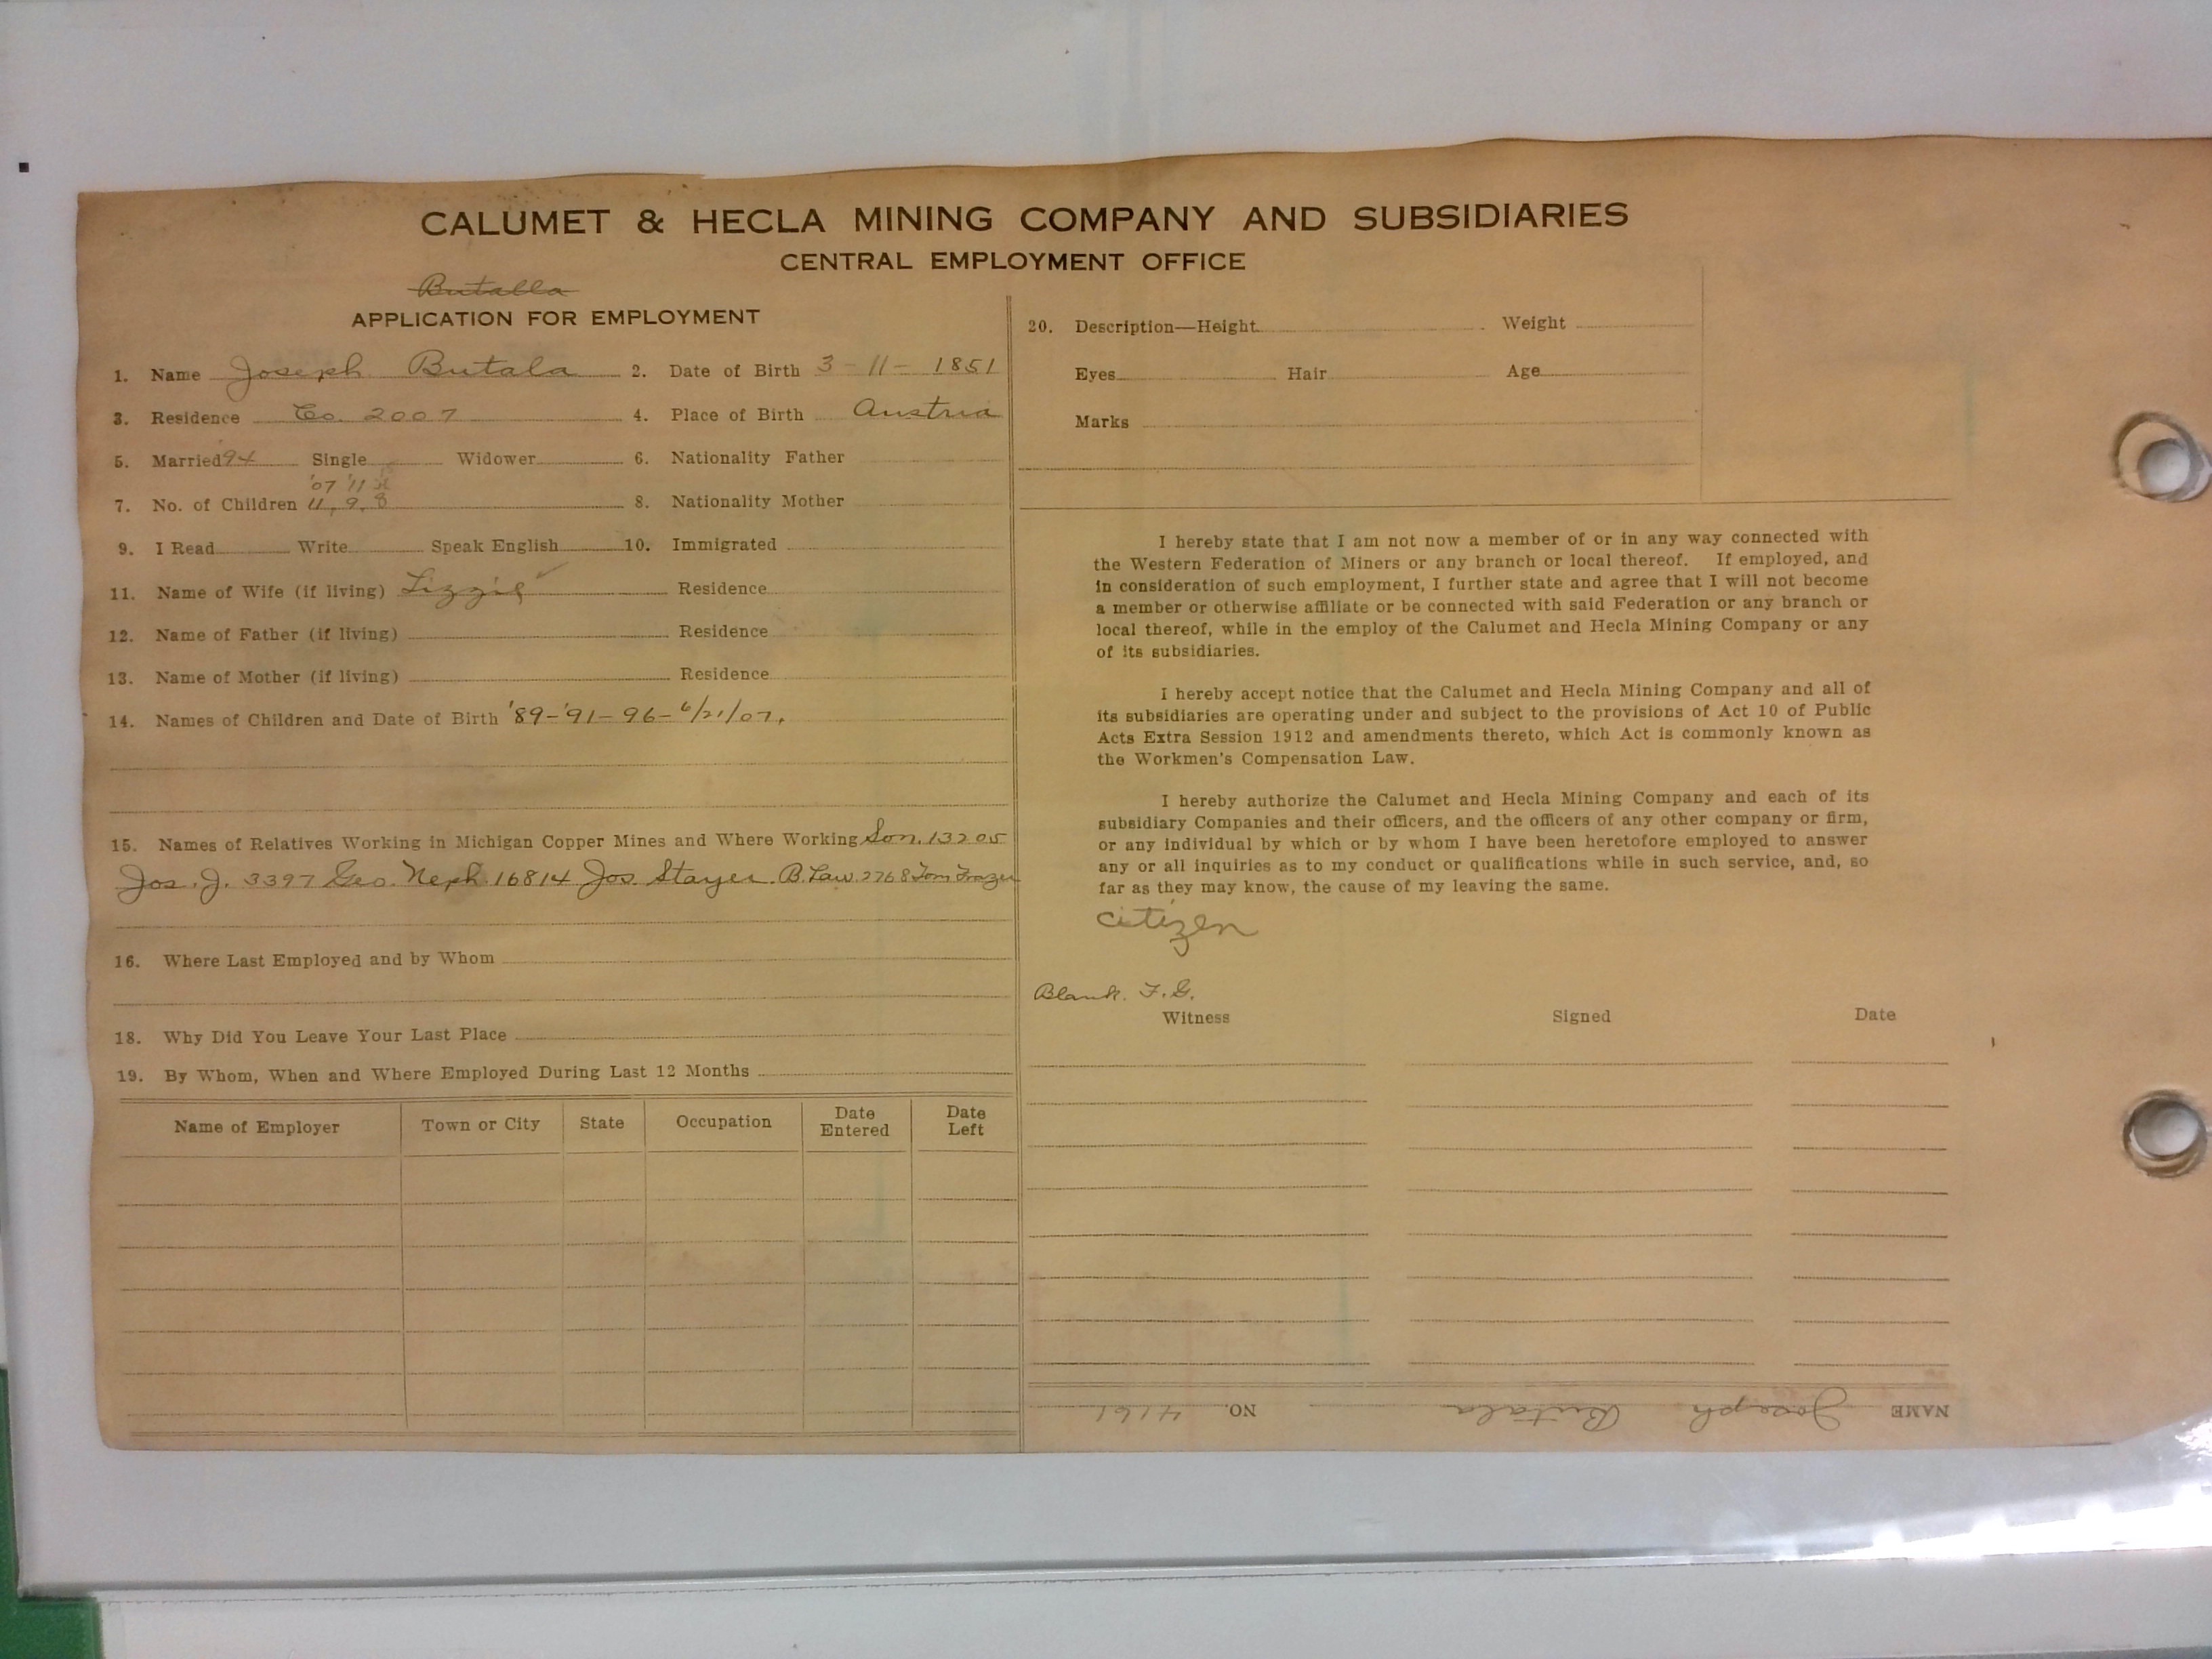 CALUMET & HECLA MINING COMPANY AND SUBSIDIARIES
CENTRAL EMPLOYMENT OFFICE
Butalla
APPLICATION FOR EMPLOYMENT
1. Name Joseph Butala 2. Date of Birth 3-11-1851
3. Residence Co. 2007 4. Place of Birth Austria
5. Married 94 Single Widower 6. Nationality Father
'07 '11
7. No. of Children 11, 9, 8 8. Nationality Mother
9. I Read Write Speak English 10. Immigrated
11. Name of Wife (if living) Lizzie Residence
12. Name of Father (if living) Residence
13. Name of Mother (if living) Residence
14. Names of Children and Date of Birth '89-'91-96-6/21/07.
15. Names of Relatives Working in Michigan Copper Mines and Where Working Son. 13205
Jos. J. 3397 Geo. Neph. 16814 Jos. Stayer. B. Law. 2768 Tom Frazer
16. Where Last Employed and by Whom
18. Why Did You Leave Your Last Place
19. By Whom, When and Where Employed During Last 12 Months
Name of Employer Town or City State Occupation Date Entered Date Left
20. Description—Height Weight
Eyes Hair Age
Marks
I hereby state that I am not now a member of or in any way connected with
the Western Federation of Miners or any branch or local thereof. If employed, and
in consideration of such employment, I further state and agree that I will not become
a member or otherwise affiliate or be connected with said Federation or any branch or
local thereof, while in the employ of the Calumet and Hecla Mining Company or any
of its subsidiaries.
I hereby accept notice that the Calumet and Hecla Mining Company and all of
its subsidiaries are operating under and subject to the provisions of Act 10 of Public
Acts Extra Session 1912 and amendments thereto, which Act is commonly known as
the Workmen's Compensation Law.
I hereby authorize the Calumet and Hecla Mining Company and each of its
subsidiary Companies and their officers, and the officers of any other company or firm,
or any individual by which or by whom I have been heretofore employed to answer
any or all inquiries as to my conduct or qualifications while in such service, and, so
far as they may know, the cause of my leaving the same.
citizen
Blank. F.G.
Witness Signed Date
NAME Joseph Butala NO. 4161